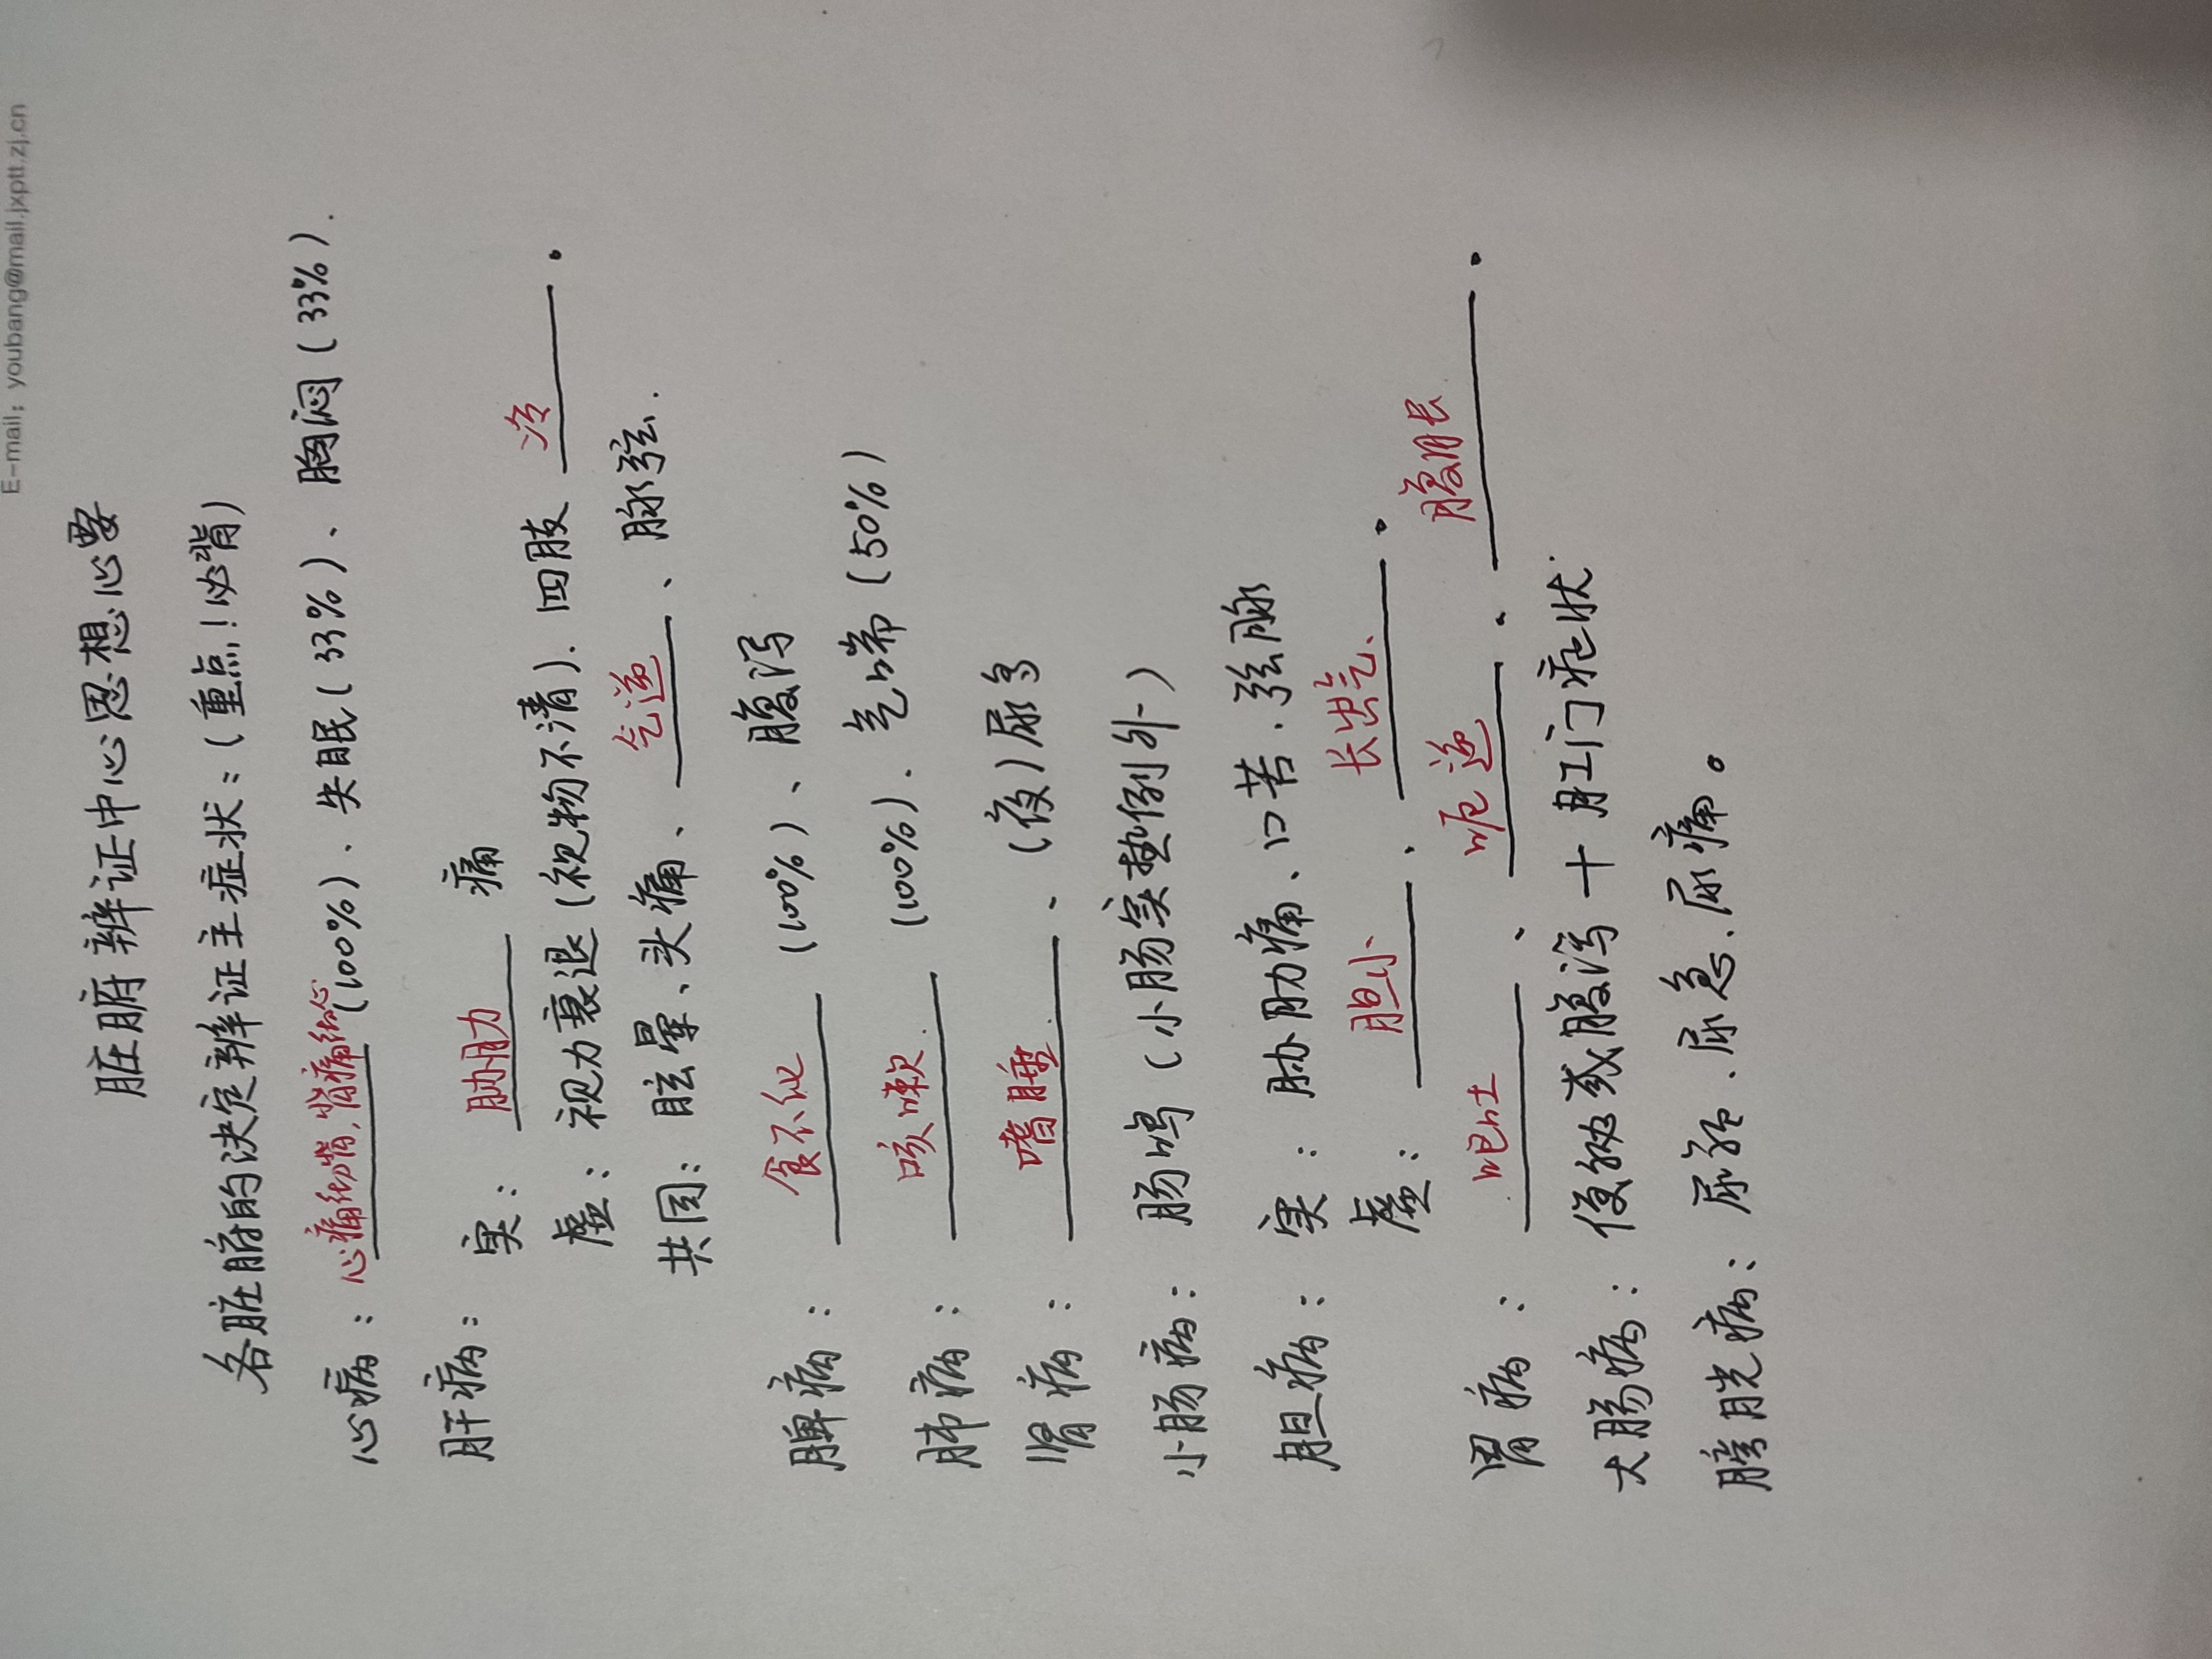 E-mail: youbang@mail.jxptt.zj.cn
脏腑辨证中心思想心要
各脏腑的决定辨证主症状:(重点!必背)
心病: 心痛彻背,背痛彻心(100%)、失眠(33%)、胸闷(33%).
肝病: 实: 胁肋痛
虚: 视力衰退(视物不清). 四肢冷。
共同: 眩晕、头痛、气逆、脉弦.
脾病: 食不化(100%)、腹泻
肺病: 咳嗽(100%). 气喘(50%)
肾病: 嗜睡、(夜)尿多
小肠病: 肠鸣(小肠实热例外)
胆病: 实: 胁肋痛、口苦.弦脉
虚: 胆小、长出气、。
胃病: 呕吐、呃逆、腹胀。
大肠病: 便秘或腹泻+肛门症状.
膀胱病: 尿频.尿急.尿痛。